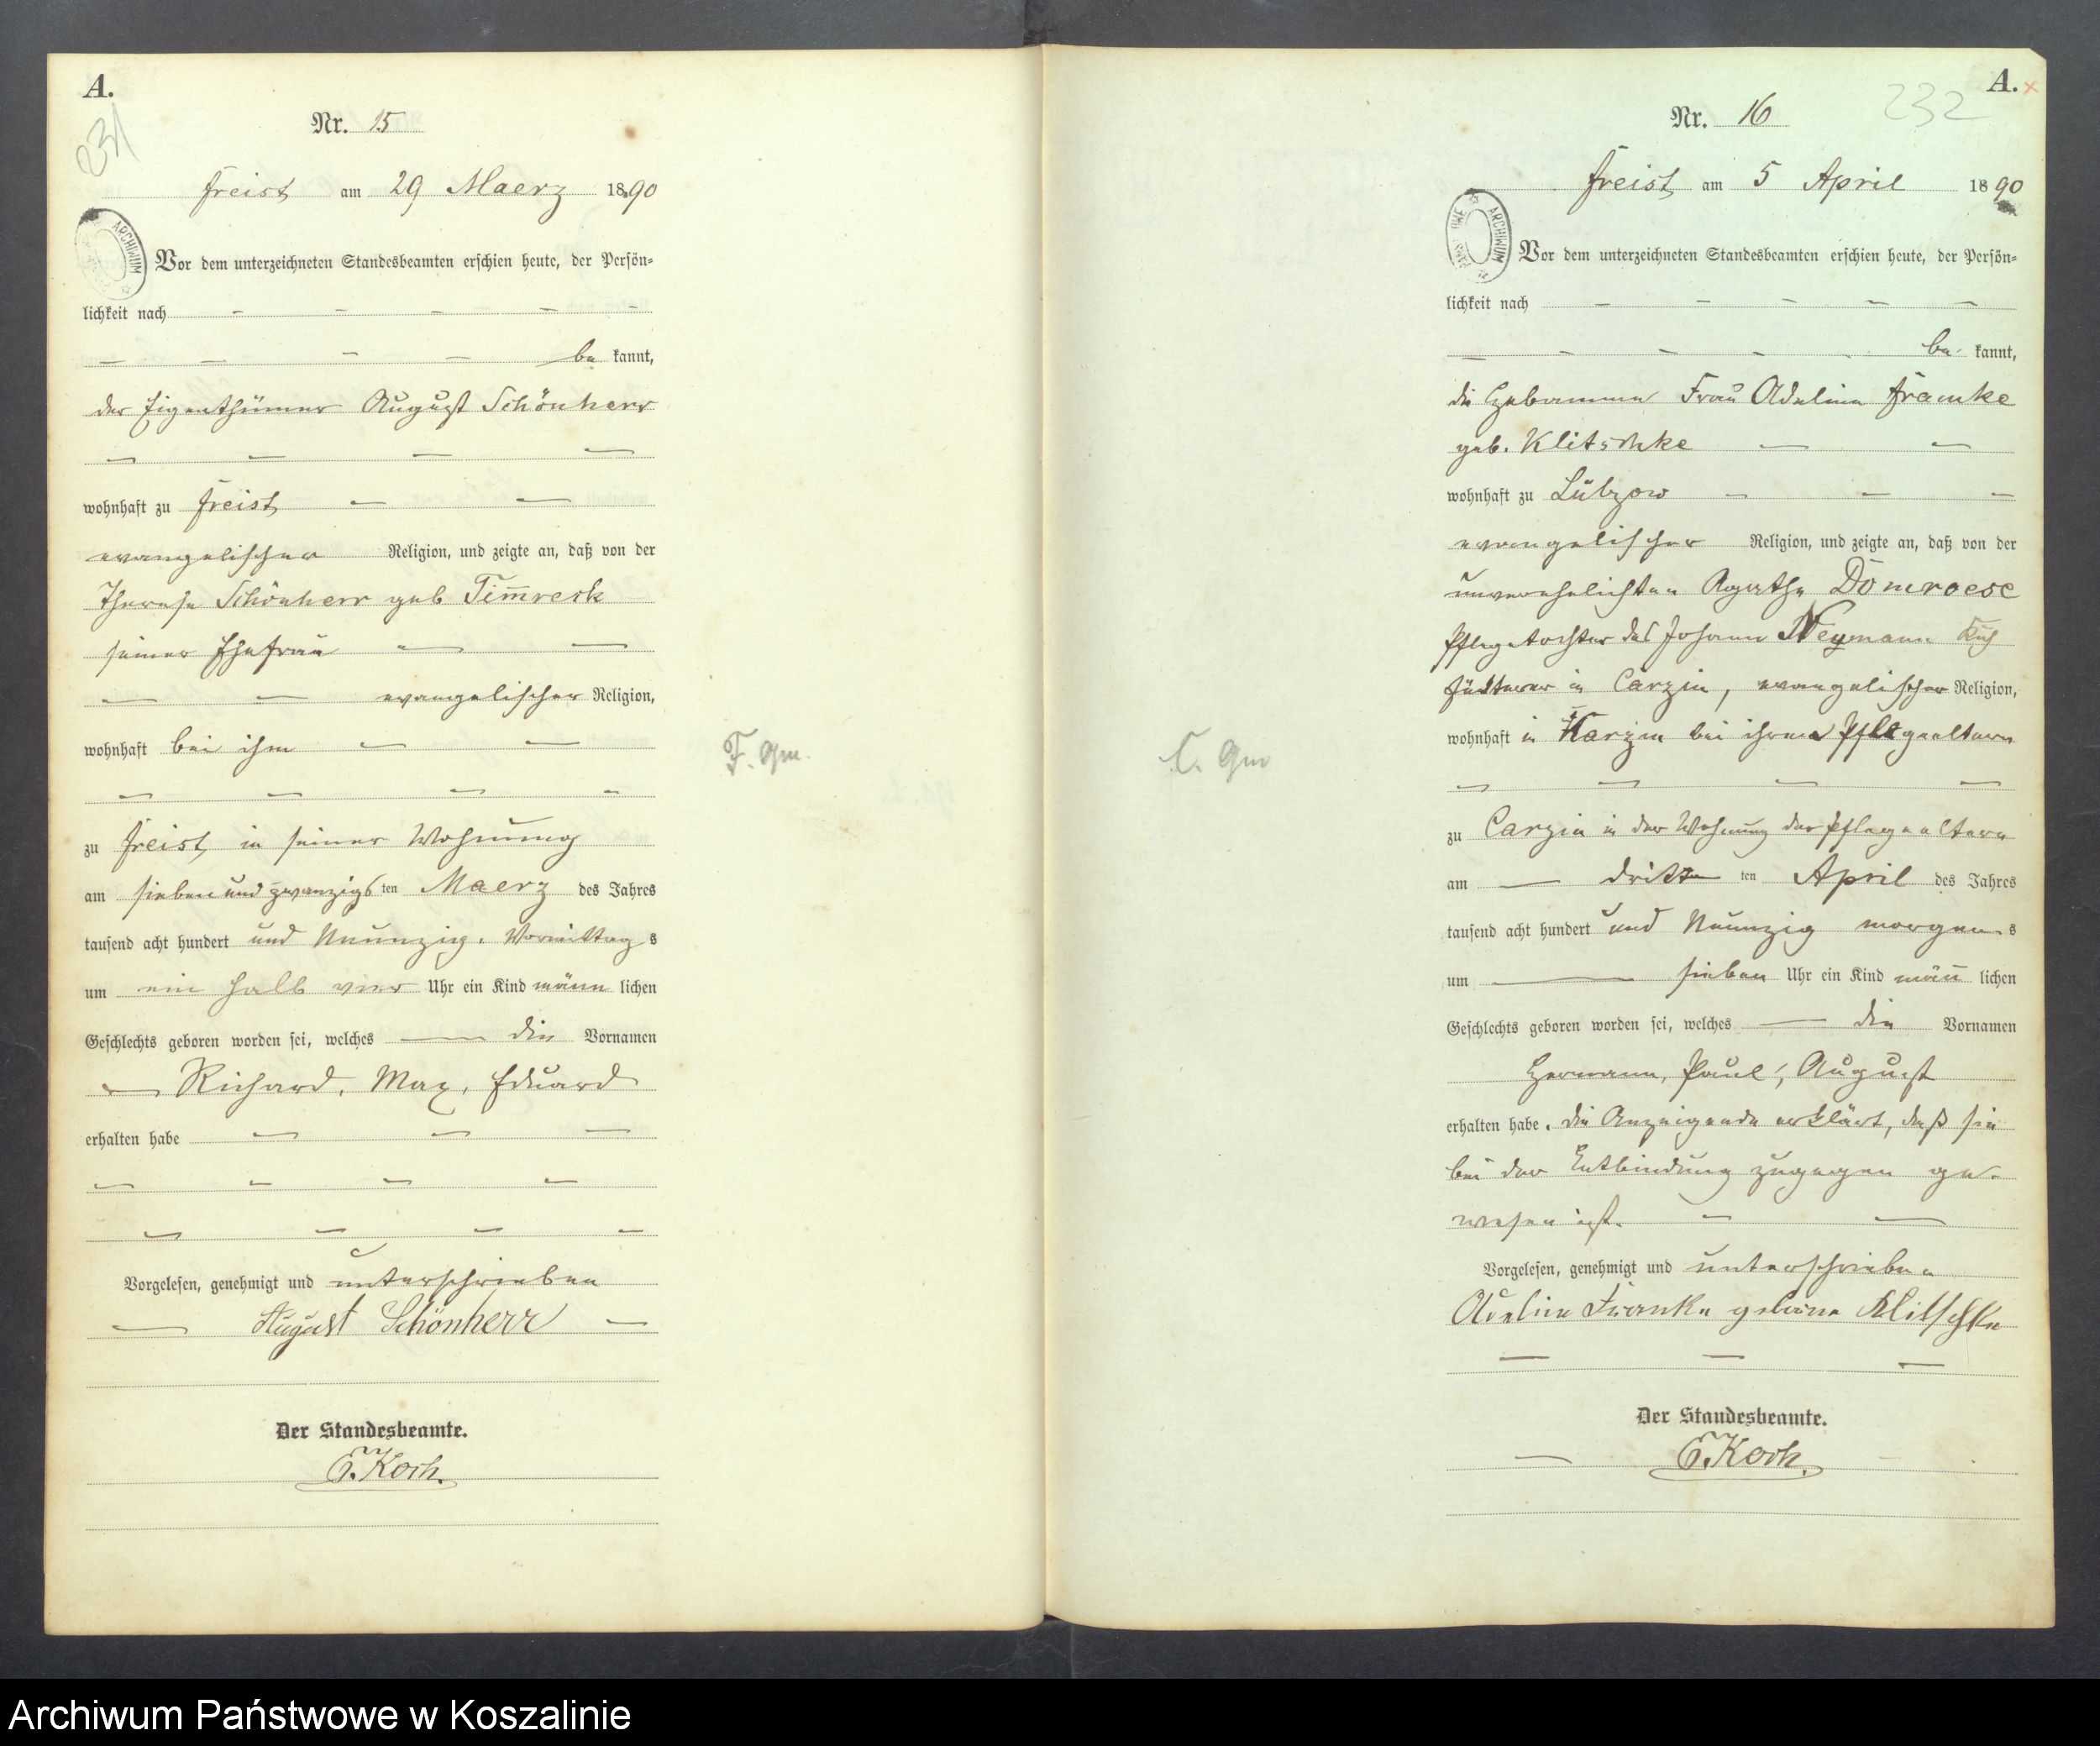 A.
231
Nr. 15
Freist am 29 Maerz 1890
ARCHIWUM
Vor dem unterzeichneten Standesbeamten erschien heute, der Persön-
lichkeit nach - - - - -
- - - - be kannt,
der Eigenthümer August Schönherr
- - - -
wohnhaft zu Freist - -
evangelischer Religion, und zeigte an, daß von der
Therese Schönherr geb Tim̅reck
seiner Ehefrau - -
- - evangelischer Religion,
wohnhaft bei ihm - -
- - - -
zu Freist, in seiner Wohnung
am sieben und zwanzigs ten Maerz des Jahres
tausend acht hundert und Neunzig. Vormittag s
um ein halb vier Uhr ein Kind männ lichen
Geschlechts geboren worden sei, welches — die Vornamen
- Richard, Max, Eduard
erhalten habe - - -
- - - -
- - - -
Vorgelesen, genehmigt und unterschrieben
- August Schönherr -
Der Standesbeamte.
E. Koch.
F. Gm.
A. x
232
Nr. 16
Freist, am 5 April 1890
ARCHIWUM
Vor dem unterzeichneten Standesbeamten erschien heute, der Persön-
lichkeit nach - - - - -
- - - - be- kannt,
die Hebamme Frau Adeline Framke
geb. Klitschke - -
wohnhaft zu Lübzow - - -
evangelischer Religion, und zeigte an, daß von der
unverehelichten Agathe Domroese
Pflegetochter des Johann Neymann Kuh
fütterer in Carzin, evangelischer Religion,
wohnhaft in Karzin bei ihren Pflegeeltern
- - - -
zu Carzin in der Wohnung der Pflegeeltern
am — dritten ten April des Jahres
tausend acht hundert und Neunzig morgen s
um — sieben Uhr ein Kind män̅ lichen
Geschlechts geboren worden sei, welches — die Vornamen
Hermann, Paul, August
erhalten habe. die Anzeigende erklärt, daß sie
bei der Entbindung zugegen ge-
wesen ist. - -
Vorgelesen, genehmigt und unterschrieben
Adeline Franke geborne Klitschke
- - -
Der Standesbeamte.
- E. Koch.
C. Gm
Archiwum Państwowe w Koszalinie